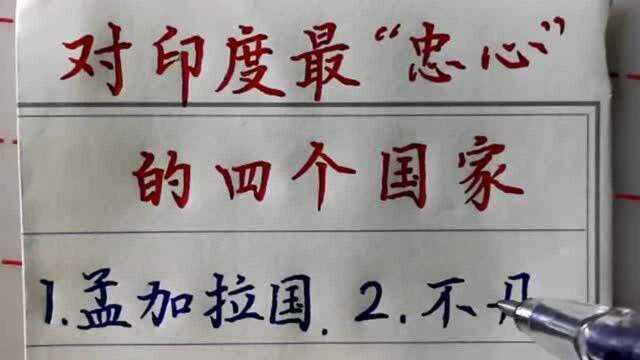 对印度最“忠心”
的四个国家
1.孟加拉国. 2.不丹